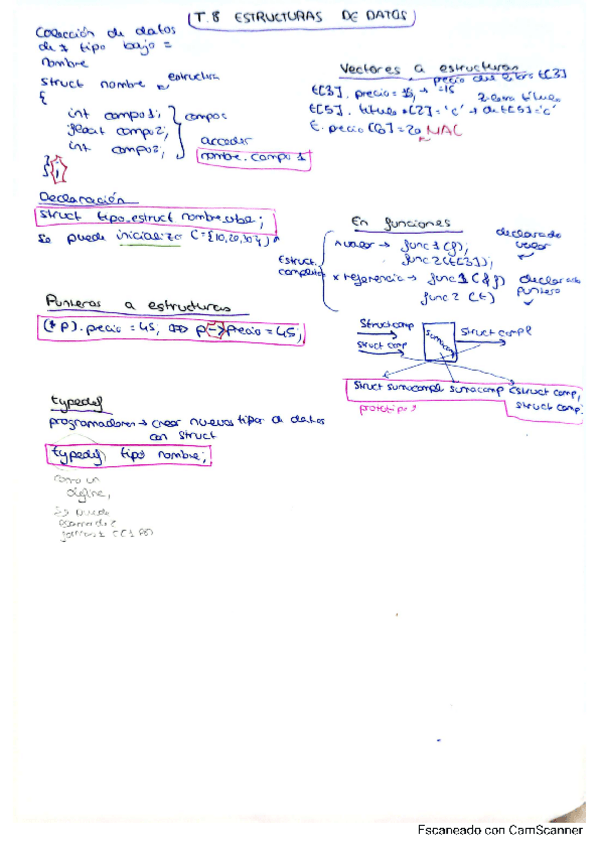 T.8 ESTRUCTURAS DE DATOS
Colección de datos
de ≠ tipo bajo =
nombre
struct nombre estructura
{
int campo1;
float campo2;
int campo3;
campos
};
acceder
nombre.campo1
Declaración
struct tipo_estruct nombre_vble;
Se puede inicializar C={10,20,30}
Punteros a estructuras
(*p).precio = 45; p->precio = 45;
typedef
programadores → crear nuevos tipos de datos
con struct
typedef tipo nombre;
como un
define,
Vectores a estructuras
precio del libro t[3]
t[3].precio=
t[5].titulo [2]='c' →
2 letra título
t.precio[6]=20 MAL
En funciones
Estruct.
completa
x valor → func1(f);
func2(t[3]);
declarado
valor
x referencia → func1(&f)
func2(t)
declarado
puntero
Struct comp
struct comp
suma
struct compl
struct sumacompl sumacomp (struct comp,
struct comp)
prototipo
Escaneado con CamScanner